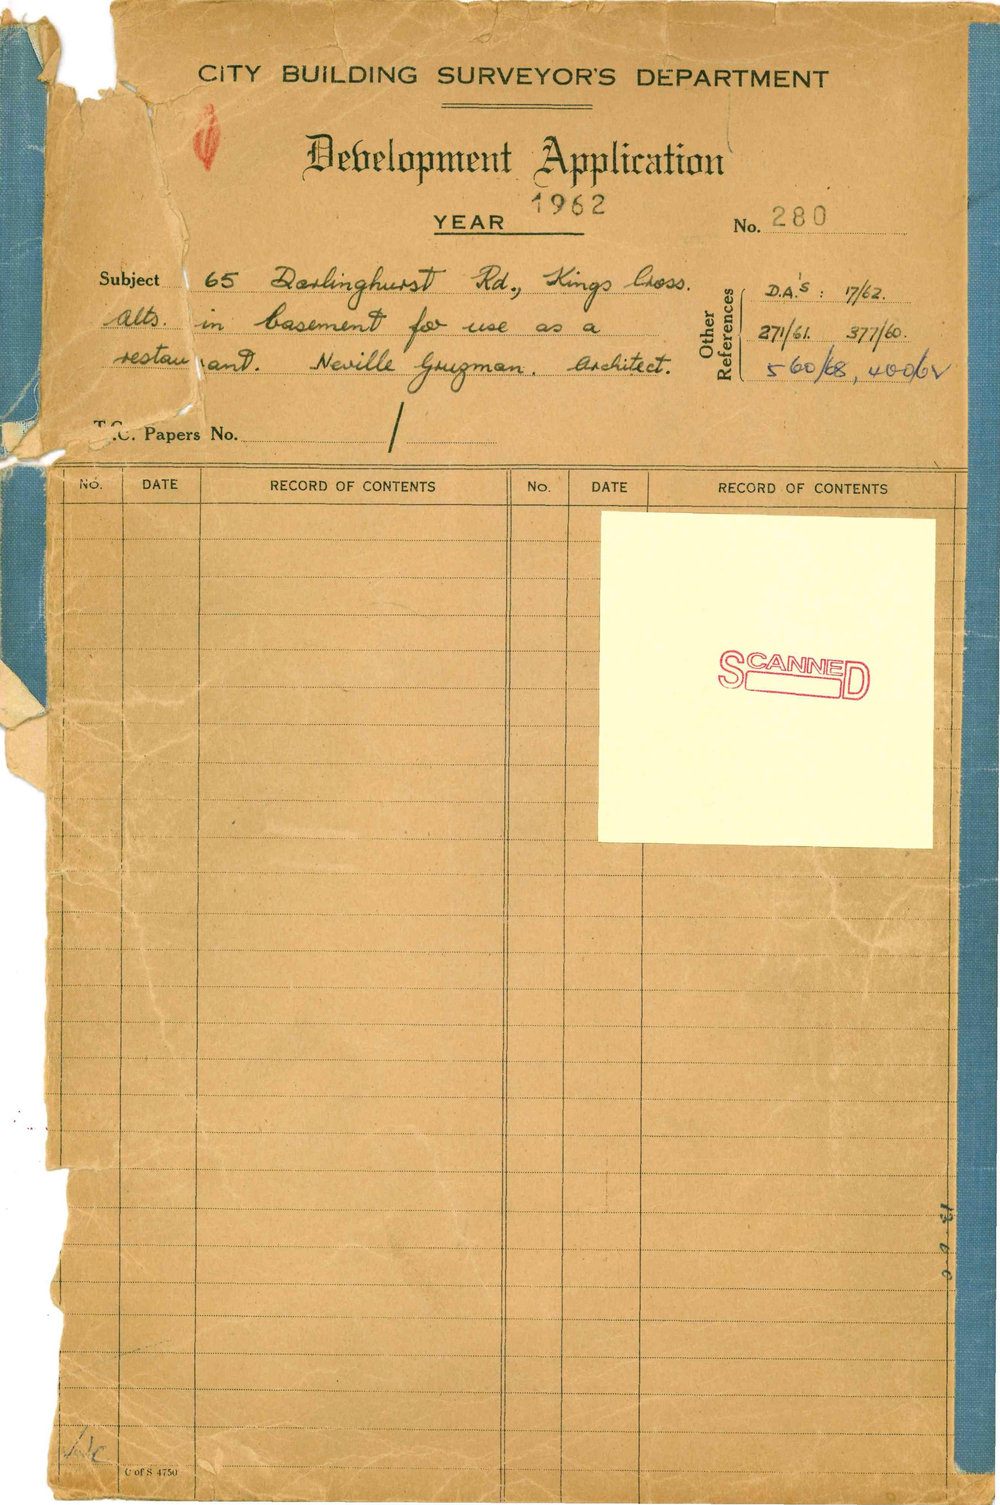 CITY BUILDING SURVEYOR'S DEPARTMENT
Development Application
YEAR 1962
No. 280
Subject 65 Darlinghurst Rd., Kings Cross.
Alts. in basement for use as a
restaurant. Neville Gruzman. Architect.
Other References
D.A.'s : 17/62.
271/61. 377/60.
560/68,
T.C. Papers No. /
No. DATE RECORD OF CONTENTS No. DATE RECORD OF CONTENTS
SCANNED
C of S 4750